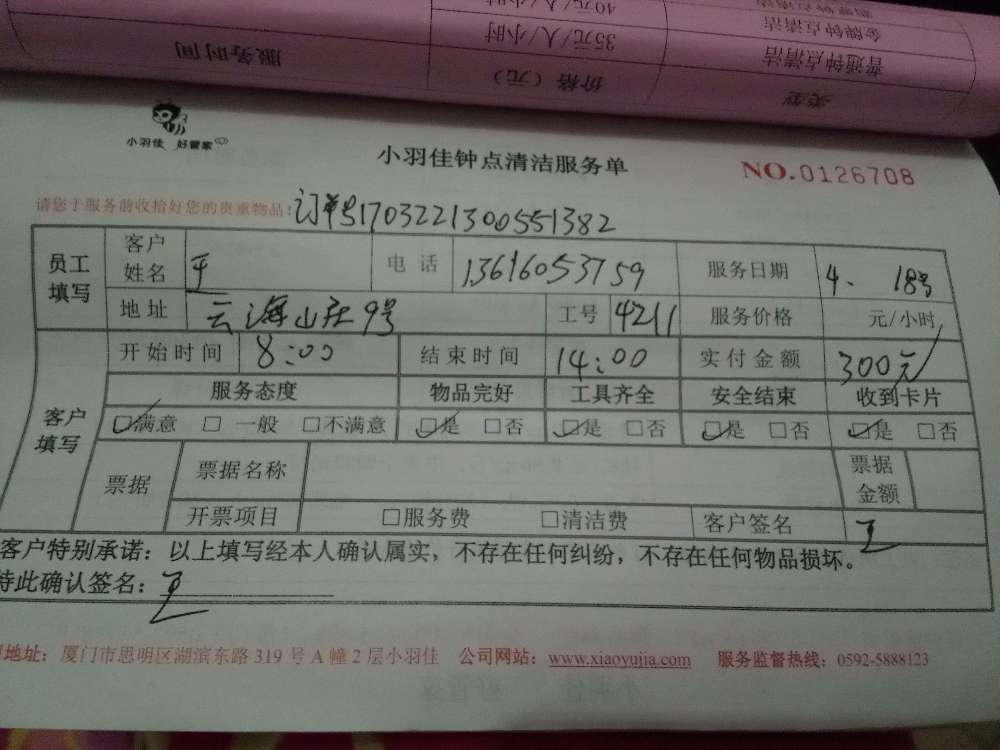 40元/人/小时
金牌钟点清洁
35元/人/小时
普通钟点清洁
服务时间
价格（元）
类型
小羽佳 好管家
小羽佳钟点清洁服务单
NO.0126708
请您于服务前收拾好您的贵重物品: 订单号1703221300551382
员工填写 客户姓名 平 电话 13616053759 服务日期 4. 18号
地址 云海山庄9号 工号 4211 服务价格 元/小时
客户填写 开始时间 8:00 结束时间 14:00 实付金额 300元
服务态度 物品完好 工具齐全 安全结束 收到卡片
☑满意 □ 一般 □不满意 ☑是 □否 ☑是 □否 ☑是 □否 ☑是 □否
票据 票据名称 票据金额
开票项目 □服务费 □清洁费 客户签名
客户特别承诺：以上填写经本人确认属实，不存在任何纠纷，不存在任何物品损坏。
特此确认签名：
地址：厦门市思明区湖滨东路 319 号 A 幢 2 层小羽佳 公司网站：www.xiaoyujia.com 服务监督热线：0592-5888123